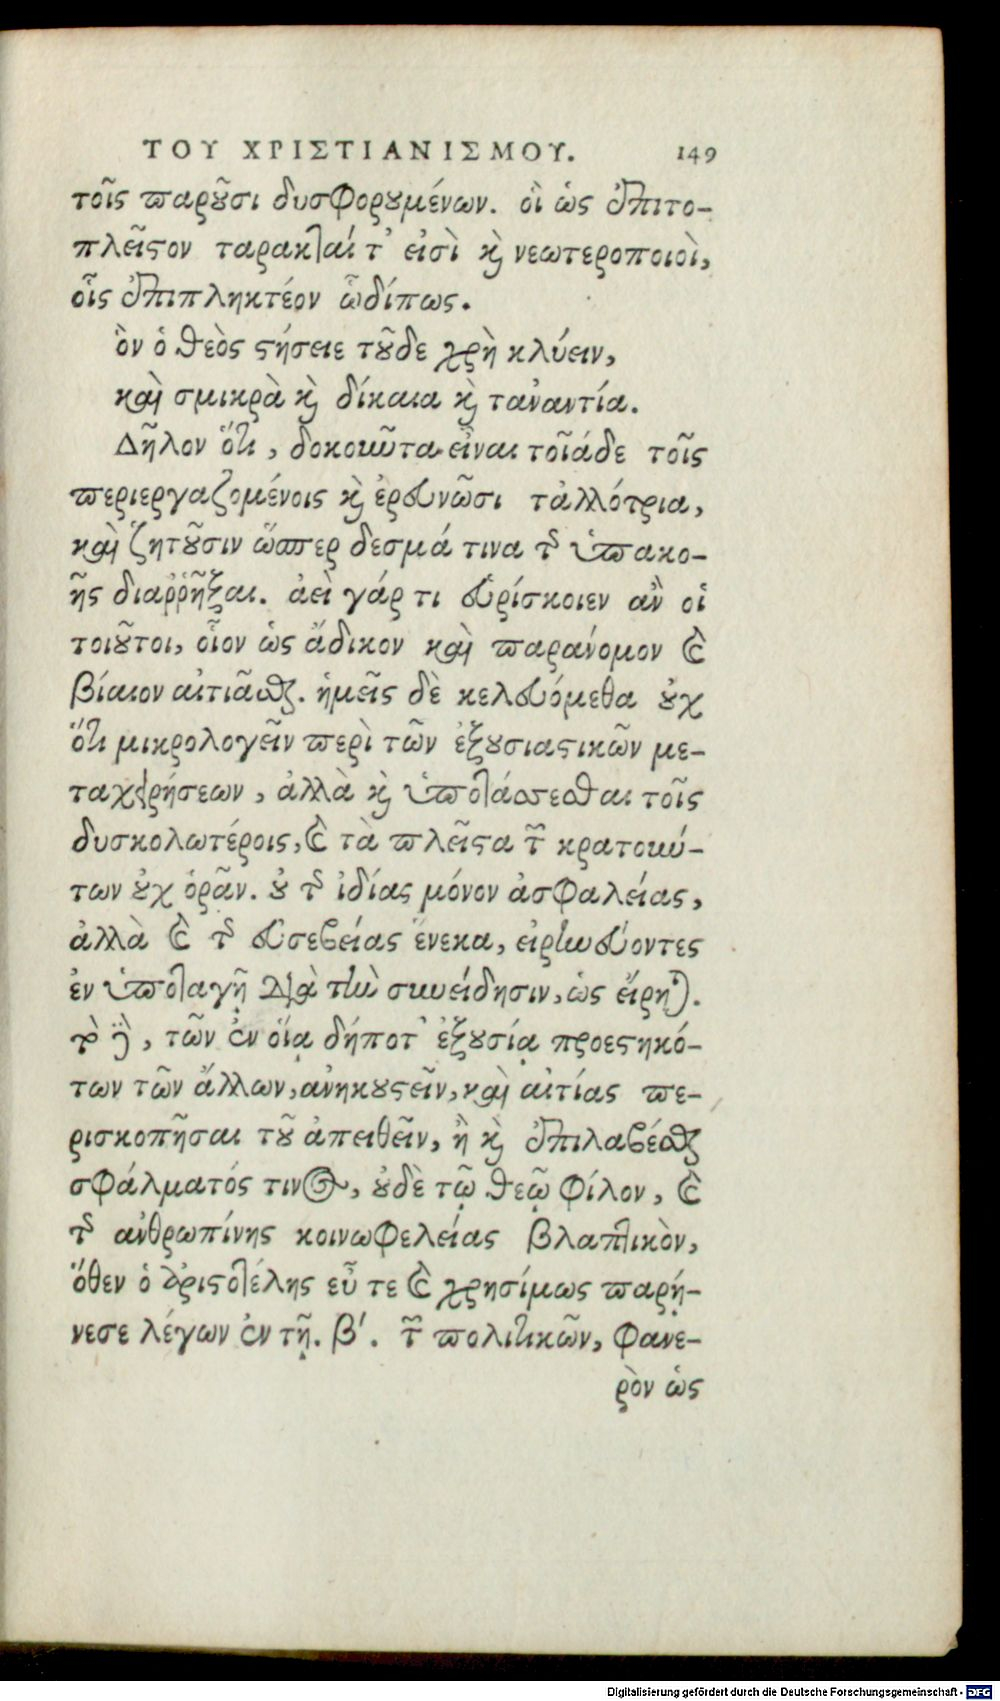 ΤΟΥ ΧΡΙΣΤΙΑΝΙΣΜΟΥ. 149
τοῖς παροῦσι δυσφορουμένων. οἳ ὡς ἐπιτο-
πλεῖστον ταρακταί τ' εἰσὶ καὶ νεωτεροποιοὶ,
οἷς ἐπιπληκτέον ὧδίπως.
ὃν ὁ θεὸς στήσειε τοῦδε χρὴ κλύειν,
καὶ σμικρὰ καὶ δίκαια καὶ τἀναντία.
Δῆλον ὅτι, δοκοῦντα εἶναι τοῖάδε τοῖς
περιεργαζομένοις καὶ ἐρευνῶσι τἀλλότρια,
καὶ ζητοῦσιν ὥσπερ δεσμά τινα τῆς ὑπακο-
ῆς διαῤῥῆξαι. ἀεὶ γάρ τι εὑρίσκοιεν ἂν οἱ
τοιοῦτοι, οἷον ὡς ἄδικον καὶ παράνομον καὶ
βίαιον αἰτιᾶσθαι. ἡμεῖς δὲ κελευόμεθα οὐχ
ὅτι μικρολογεῖν περὶ τῶν ἐξουσιαστικῶν με-
ταχειρήσεων, ἀλλὰ καὶ ὑποτάσσεσθαι τοῖς
δυσκολωτέροις, καὶ τὰ πλεῖστα τῶν κρατούν-
των οὐχ ὁρᾶν. οὐ τῆς ἰδίας μόνον ἀσφαλείας,
ἀλλὰ καὶ τῆς εὐσεβείας ἕνεκα, εἰρηνεύοντες
ἐν ὑποταγῇ διὰ τὴν συνείδησιν, ὡς εἴρηται.
τὸ γὰρ, τῶν ἐν οἵᾳ δήποτ' ἐξουσίᾳ προεστηκό-
των τῶν ἄλλων, ἀνηκουστεῖν, καὶ αἰτίας πε-
ρισκοπῆσαι τοῦ ἀπειθεῖν, ἢ καὶ ἐπιλαβέσθαι
σφάλματός τινος, οὐδὲ τῷ θεῷ φίλον, καὶ
τῆς ἀνθρωπίνης κοινωφελείας βλαπτικὸν,
ὅθεν ὁ Ἀριστοτέλης εὖ τε καὶ χρησίμως παρῄ-
νεσε λέγων ἐν τῇ. β'. τῶν πολιτικῶν, φανε-
ρὸν ὡς
Digitalisierung gefördert durch die Deutsche Forschungsgemeinschaft - DFG